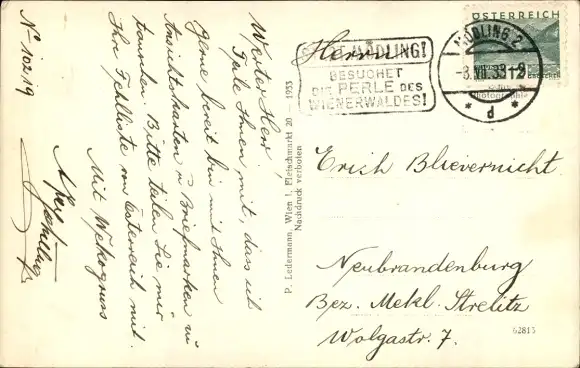 N-10219
Werter Herr!
Teile Ihnen mit, dass ich
Gerne bereit bin mit Ihnen
Ansichtskarten u Briefmarken zu
tauschen Bitte teilen Sie mir
Ihre Fehlliste von Österreich mit.
Mit
P. Ledermann, Wien I, Fleischmarkt 20 – 1933
Nachdruck verboten
MÖDLING!
BESUCHET
DIE PERLE DES
WIENERWALDES!
MÖDLING 2
ÖSTERREICH
Herrn
Erich Blievernicht
Neubrandenburg
Bez. Mekl. Strelitz
Wolgastr. 7.
62815